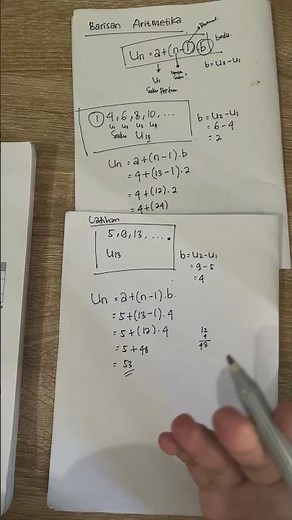 Barisan Aritmetika
Un = a + (n-1).b
beda
b = U2 - U1
U1
Suku Pertama
① 4, 6, 8, 10, ...
U1 U2 U3 U4
Suku U13
b = U2 - U1
= 6 - 4
= 2
Un = a + (n-1).b
= 4 + (13-1).2
= 4 + (12).2
= 4 + (24)
Latihan
5, 9, 13, ....
U13
b = U2 - U1
= 9 - 5
= 4
Un = a + (n-1).b.
= 5 + (13-1).4
= 5 + (12).4
= 5 + 48
= 53
12
4
48